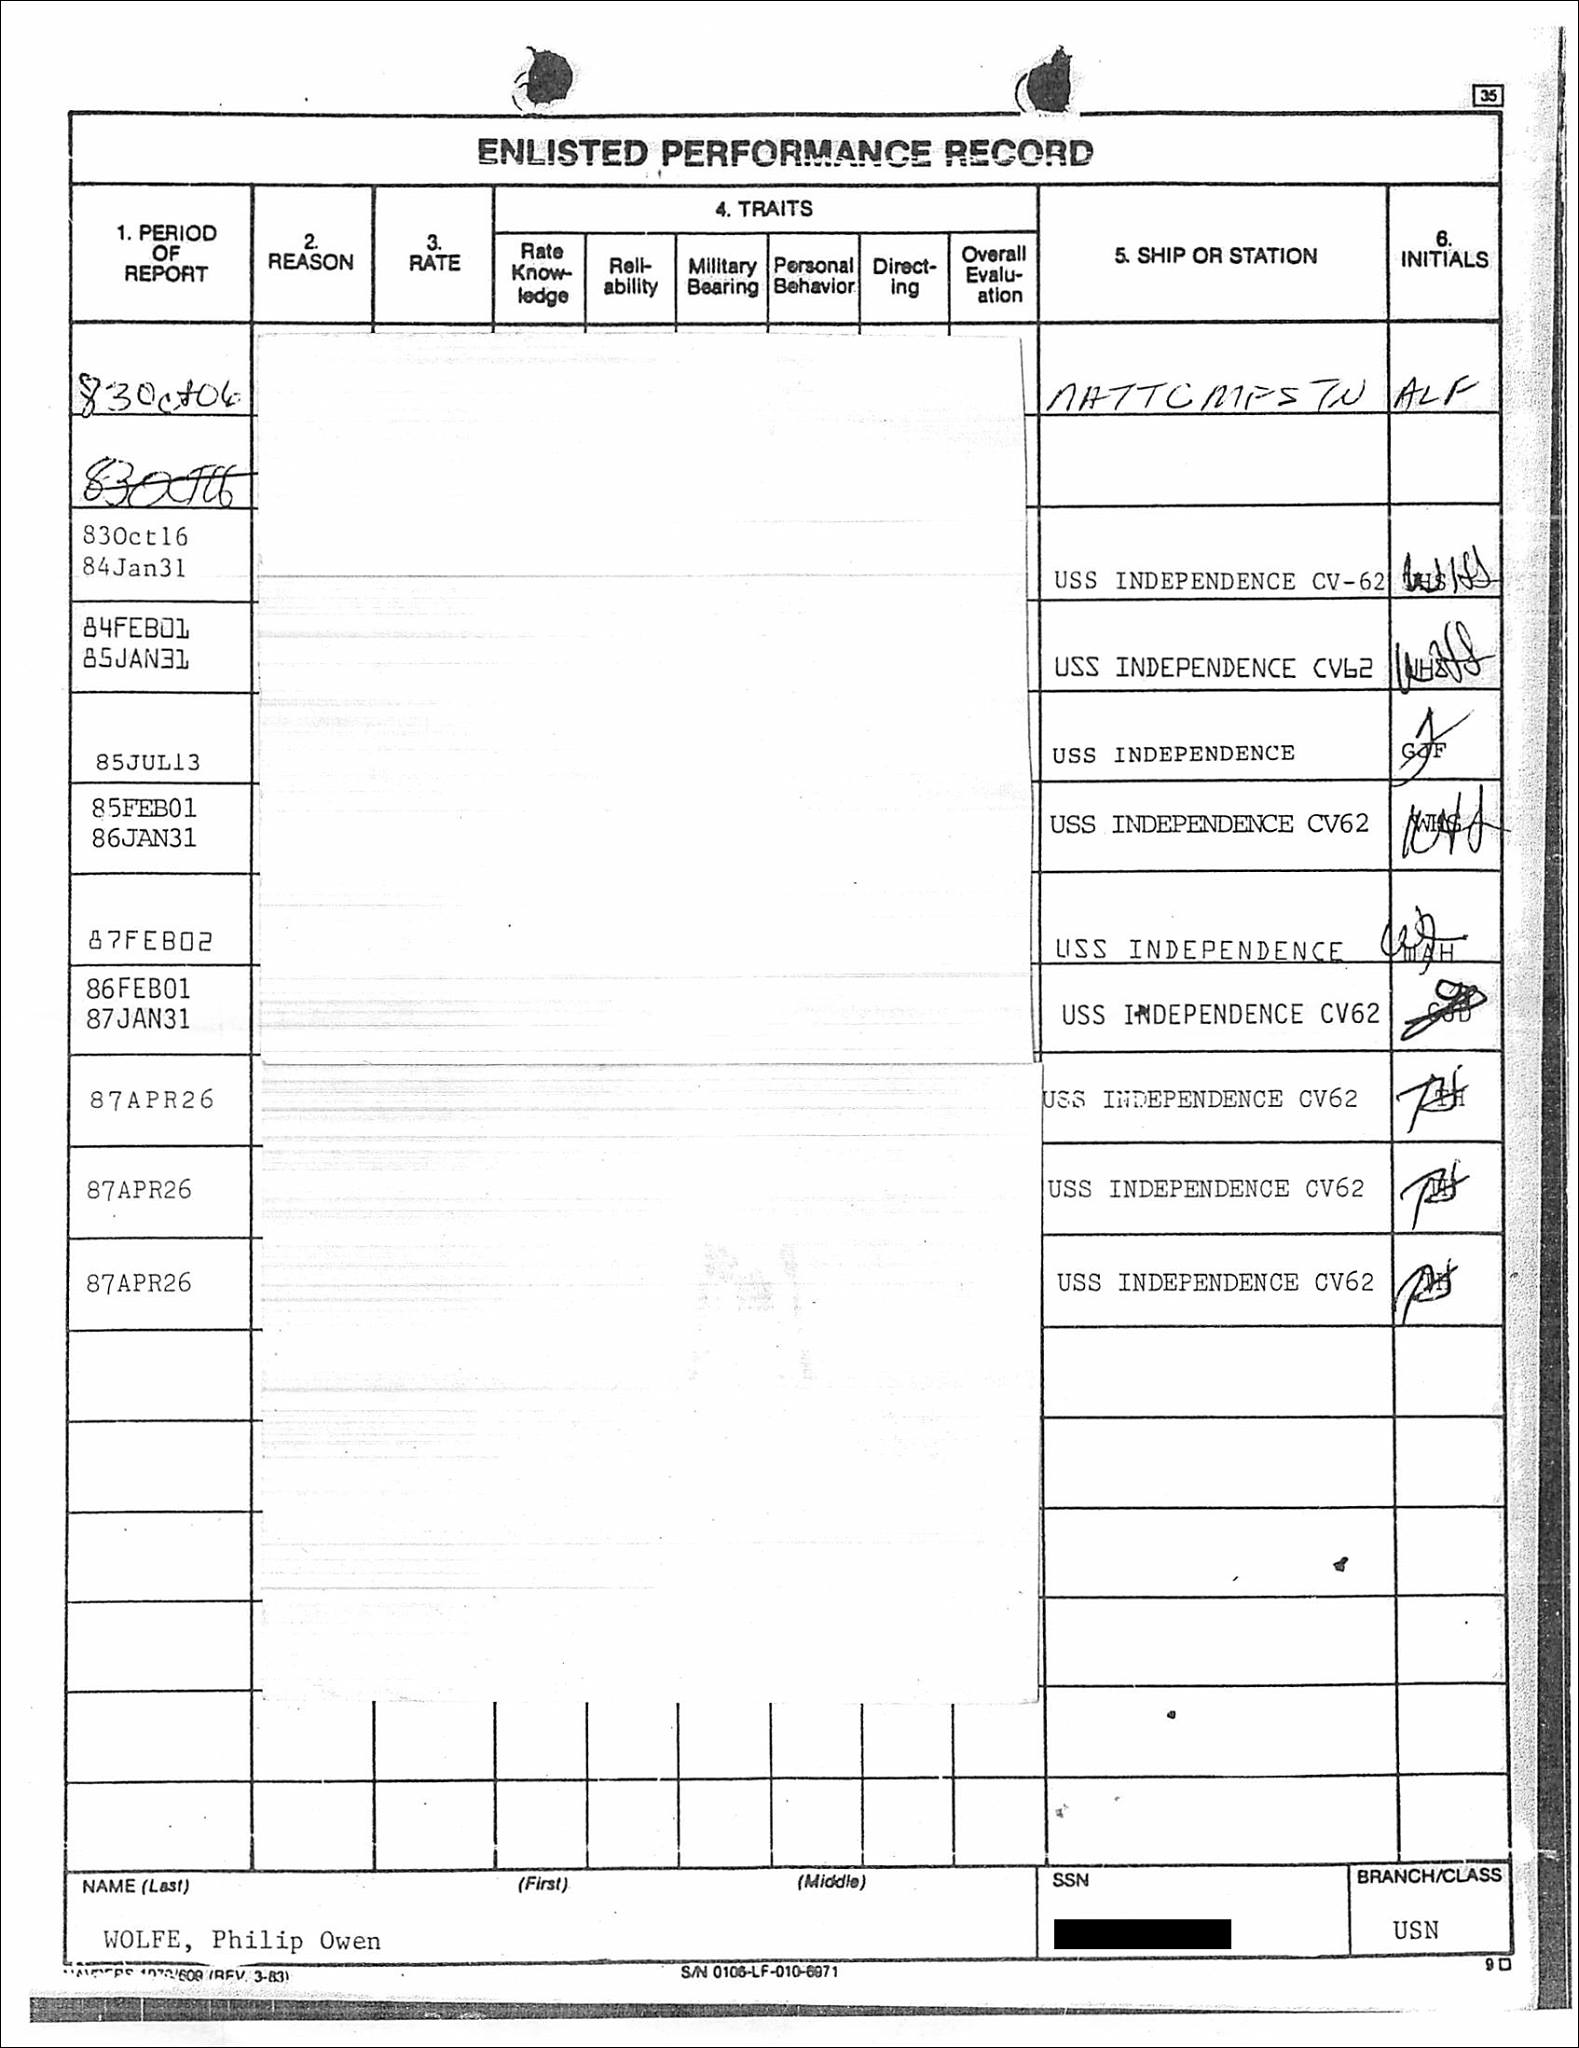 35
ENLISTED PERFORMANCE RECORD
1. PERIOD OF REPORT
2. REASON
3. RATE
4. TRAITS
Rate Know- ledge
Reli- ability
Military Bearing
Personal Behavior
Direct- ing
Overall Evalu- ation
5. SHIP OR STATION
6. INITIALS
83Oct06 NATTC MFS TN ALF
83Oct16
84Jan31 USS INDEPENDENCE CV-62
84FEB01
85JAN31 USS INDEPENDENCE CV62
85JUL13 USS INDEPENDENCE GJF
85FEB01
86JAN31 USS INDEPENDENCE CV62 WHS
87FEB02 USS INDEPENDENCE
86FEB01
87JAN31 USS INDEPENDENCE CV62
87APR26 USS INDEPENDENCE CV62
87APR26 USS INDEPENDENCE CV62
87APR26 USS INDEPENDENCE CV62
NAME (Last) (First) (Middle) SSN BRANCH/CLASS
WOLFE, Philip Owen USN
NAVPERS 1070/609 (REV. 3-83) S/N 0106-LF-010-6971 9